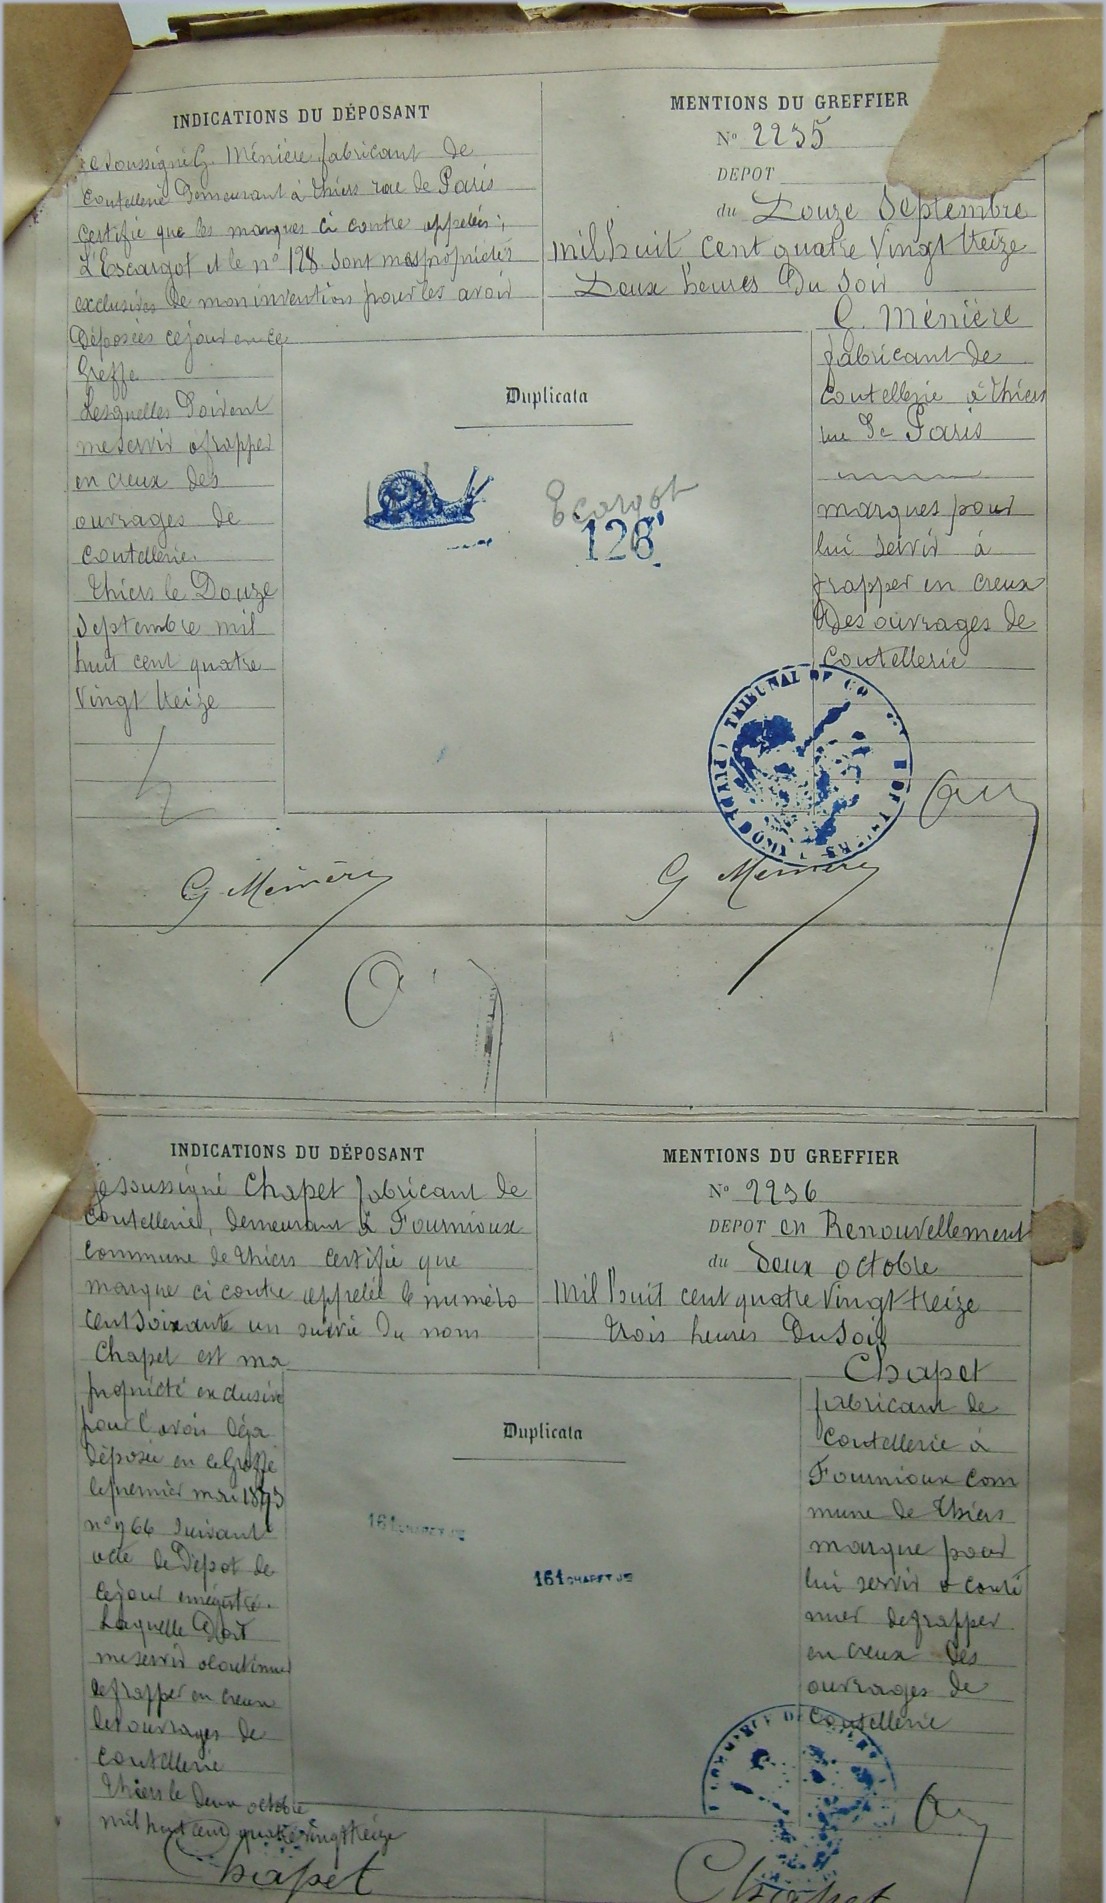 INDICATIONS DU DÉPOSANT
Je soussigné G. Ménière fabricant de
Coutellerie Demeurant à thiers rue de Paris
Certifie que les marques ci contre appelées;
L'Escargot et le n° 128 sont mes propriétés
exclusives de mon invention pour les avoir
Déposées ce jour en ce
Greffe
Lesquelles Doivent
me servir a frapper
en creux des
ouvrages de
Coutellerie.
Thiers le Douze
Septembre mil
huit cent quatre
Vingt treize
MENTIONS DU GREFFIER
N° 2235
DEPOT
du Douze Septembre
mil huit cent quatre Vingt treize
Deux heures Du Soir
G. Ménière
fabricant de
Coutellerie à thiers
rue De Paris
marques pour
lui servir à
frapper en creux
Des ouvrages de
Coutellerie
Duplicata
Escargot
128
TRIBUNAL DE CO
G Ménière
G Ménière
INDICATIONS DU DÉPOSANT
Je soussigné Chapet fabricant de
Coutellerie, demeurant à Fournioux
Commune de thiers certifie que
marque ci contre appelée le numéro
cent soixante un suivie du nom
Chapet est ma
propriété exclusive
pour l'avoir déja
Déposée en ce Greffe
le premier mai 1873
n° 966 suivant
acte de Dépot de
ce jour enregistré.
Laquelle Doit
me servir a continuer
de frapper en creux
des ouvrages de
Coutellerie
Thiers le Deux octobre
mil huit cent quatre vingt treize
Chapet
MENTIONS DU GREFFIER
N° 2236
DEPOT en Renouvellement
du deux octobre
Mil huit cent quatre Vingt treize
trois heures Du Soir
Chapet
fabricant de
Coutellerie à
Fournioux com
mune de thiers
marque pour
lui servir a conti
nuer de frapper
en creux des
ouvrages de
Coutellerie
Duplicata
161 CHAPET JE
161 CHAPET JE
COMMERCE DE THIERS
Chapet